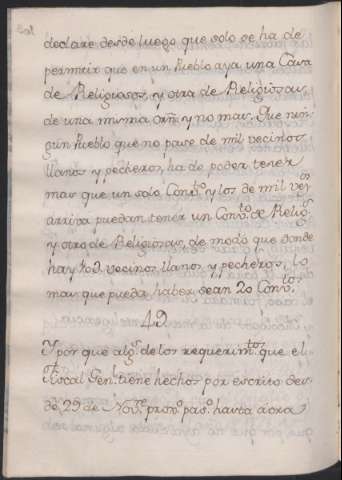 declare desde luego que solo se ha de
permitir que en un Pueblo aya una Casa
de Religiosos, y otra de Religiosas
de una misma orn̄ y no mas. Que nin
gun Pueblo que no pase de mil vecinos
llanos y pecheros, ha de poder tener
mas que un solo Convto. y los de mil vezos
arriva puedan tener un Convto. de Religs
y otro de Religiosas, de modo que donde
hay 10 vecinos, llanos, y pecheros, lo
mas que pueda haber sean 20 Convtos.
Y por que algs. de los requerimtos. que el
Fiscal Genl. tiene hechos por escrito des
de 29 de Nove. proxo. pasdo. hasta aora